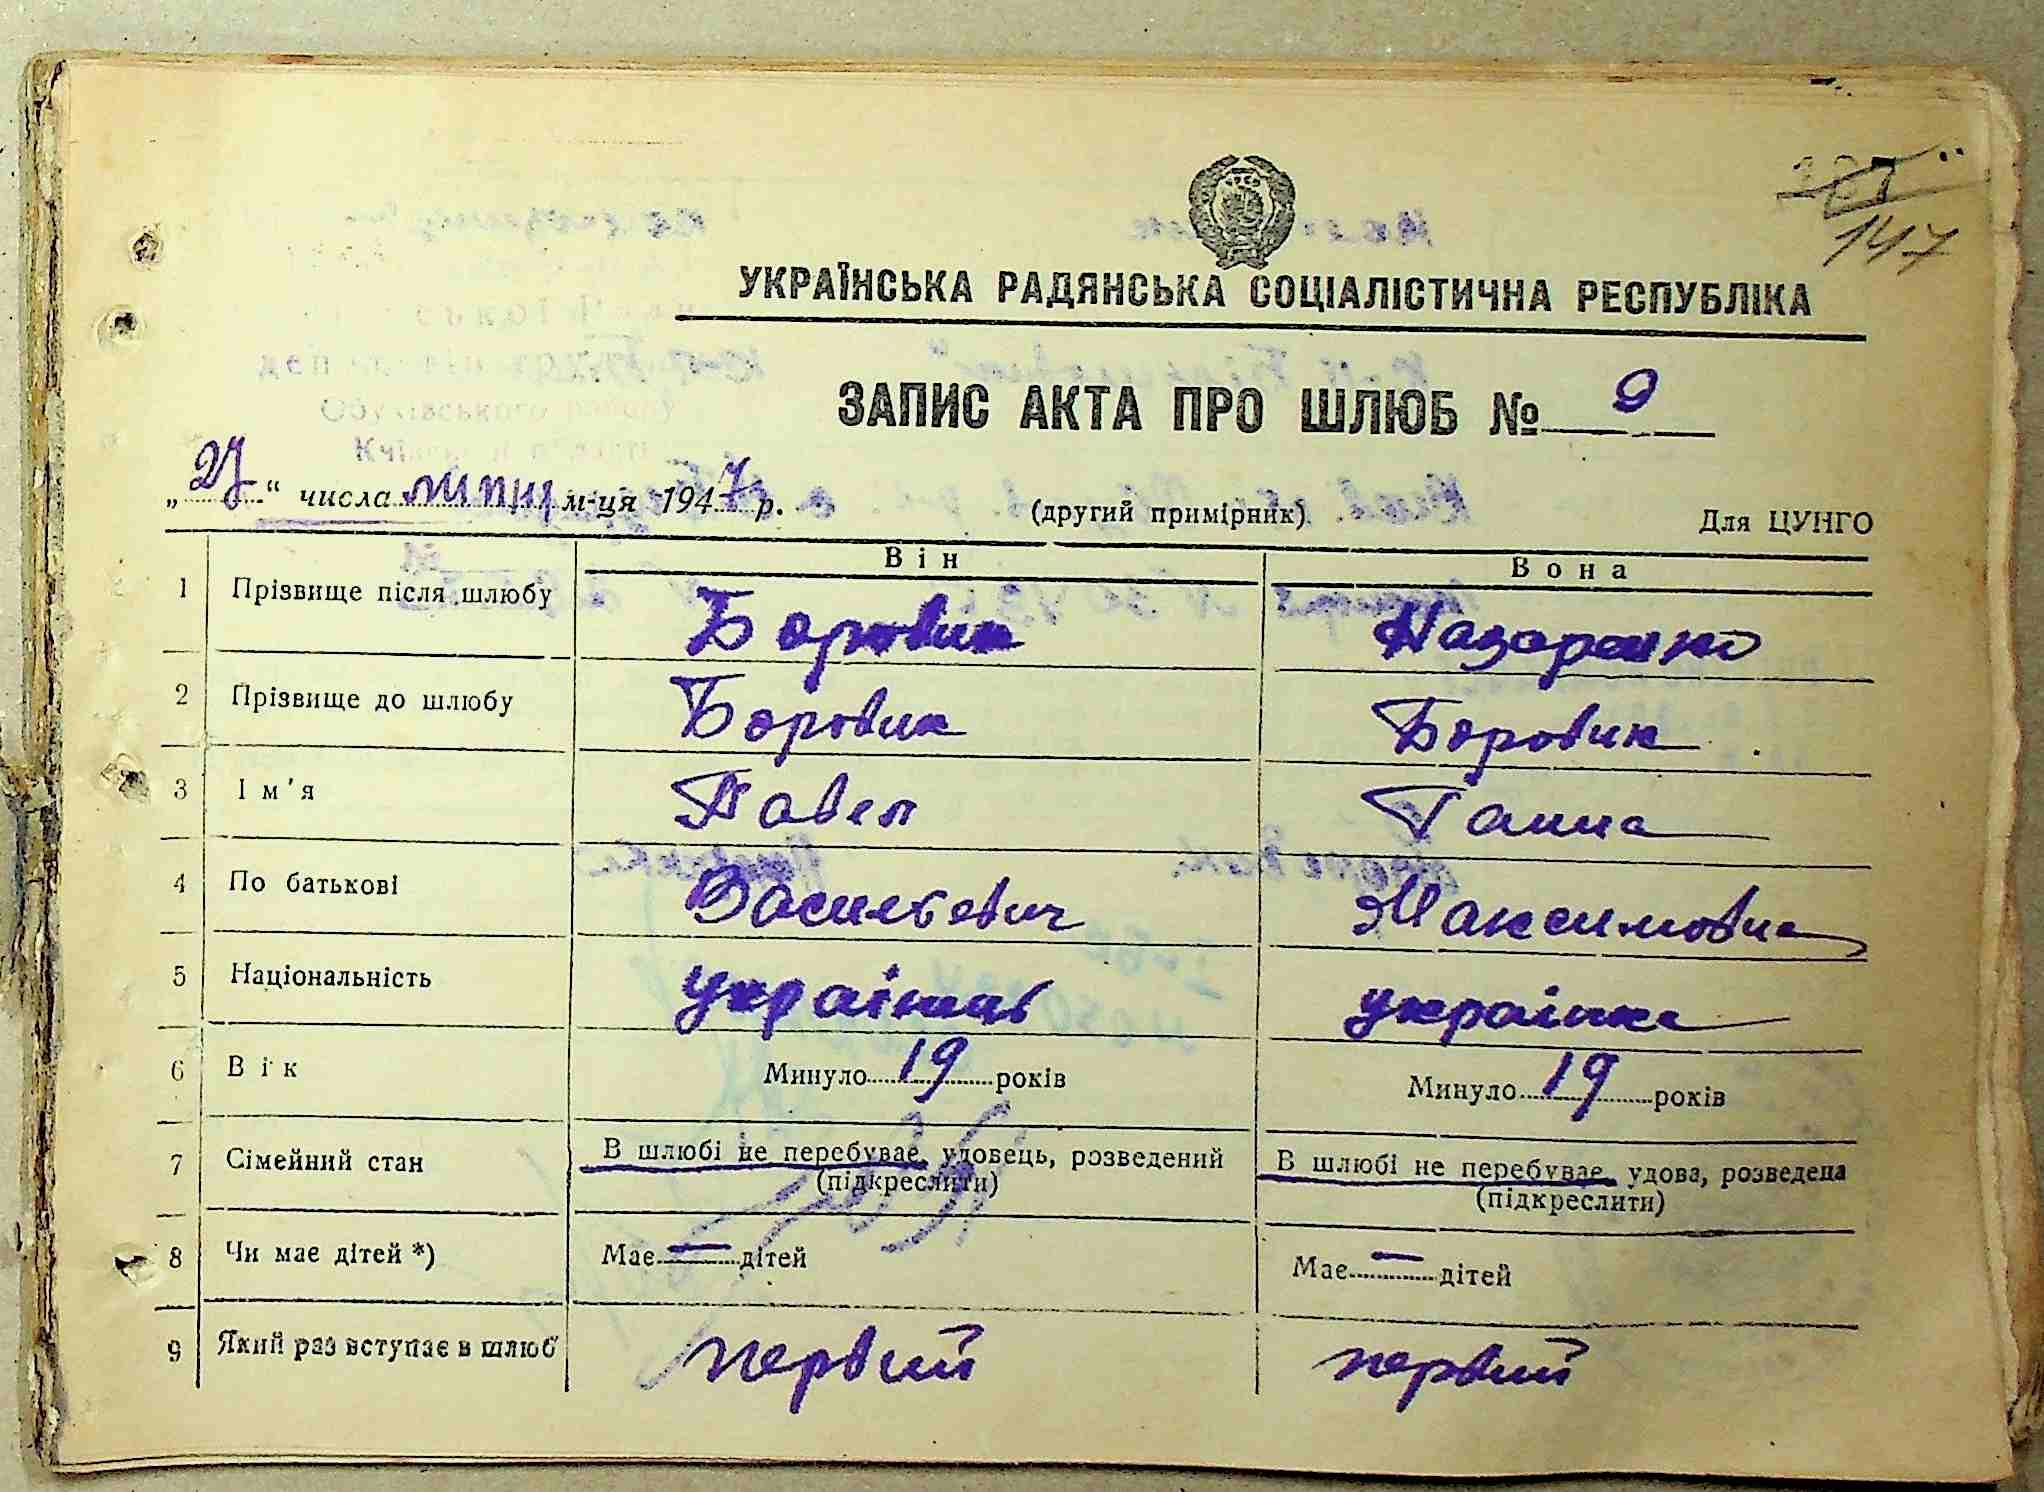 147
УКРАЇНСЬКА РАДЯНСЬКА СОЦІАЛІСТИЧНА РЕСПУБЛІКА
ЗАПИС АКТА ПРО ШЛЮБ № 9
„ “ числа липня м-ця 1947 р. (другий примірник) Для ЦУНГО
Він Вона
1 Прізвище після шлюбу Боровик Назаренко
2 Прізвище до шлюбу Боровик Боровик
3 Ім'я Павел Ганна
4 По батькові Васильевич Максимовна
5 Національність українець українка
6 Вік Минуло 19 років Минуло 19 років
7 Сімейний стан В шлюбі не перебуває, удовець, розведений В шлюбі не перебуває, удова, розведена
(підкреслити) (підкреслити)
8 Чи має дітей *) Має — дітей Має — дітей
9 Який раз вступає в шлюб первий первий